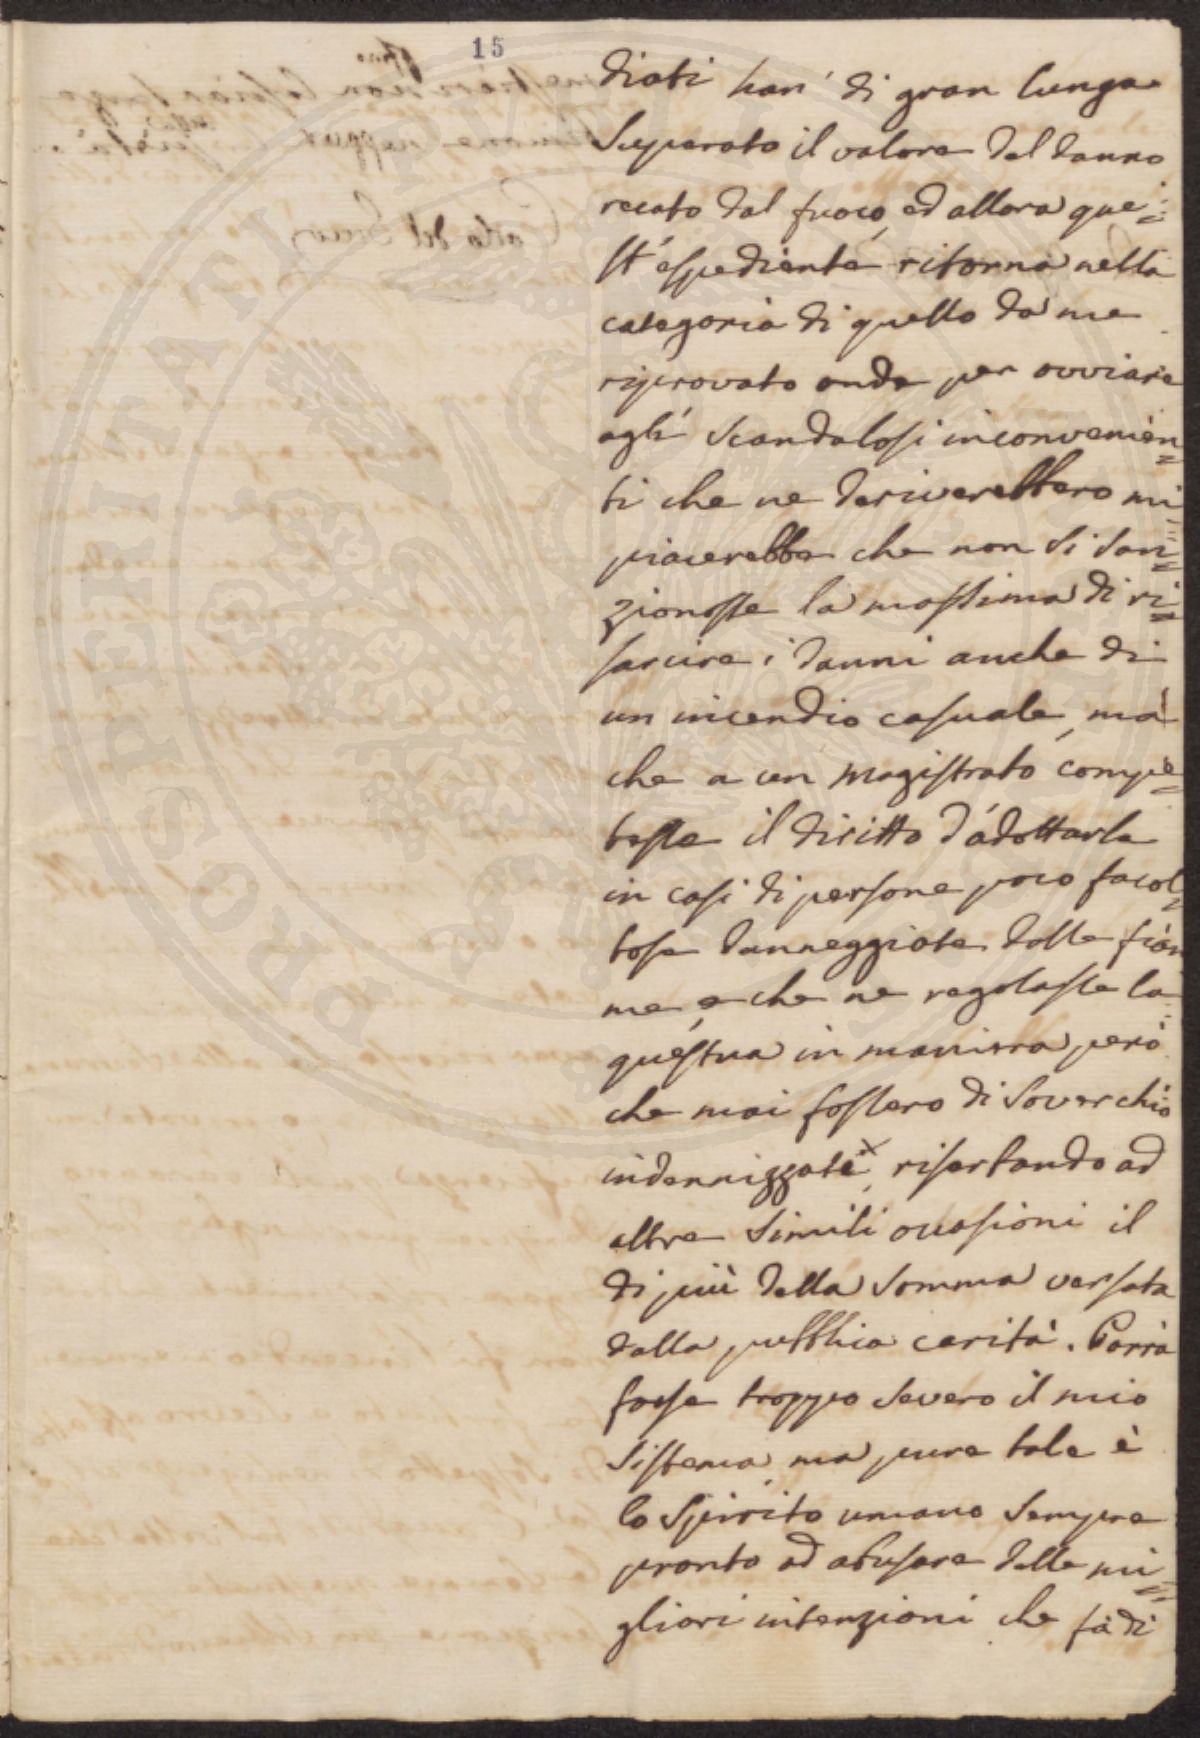 15
diati han' di gran lunga
superato il valore del danno
recato dal fuoco, ed allora que=
st'espediente ritorna nella
categoria di quello da me
riprovato onde per ovviare
agli scandalosi inconvenien=
ti che ne deriverebbero mi
piacerebbe che non si san=
zionasse la massima di ri=
sarcire i danni anche di
un incendio casuale, ma
che a un magistrato compe=
tesse il diritto d'adottarla
in casi di persone poco facol=
tose danneggiate dalle fiam
me, e che ne regolasse la
questua in maniera però
che mai fossero di soverchio
indennizzati, riserbando ad
altre simili occasioni il
di più della somma versata
dalla pubblica carità. Parrà
forse troppo severo il mio
sistema, ma pure tale è
lo spirito umano sempre
pronto ad abusare delle mi=
gliori intenzioni che fà di